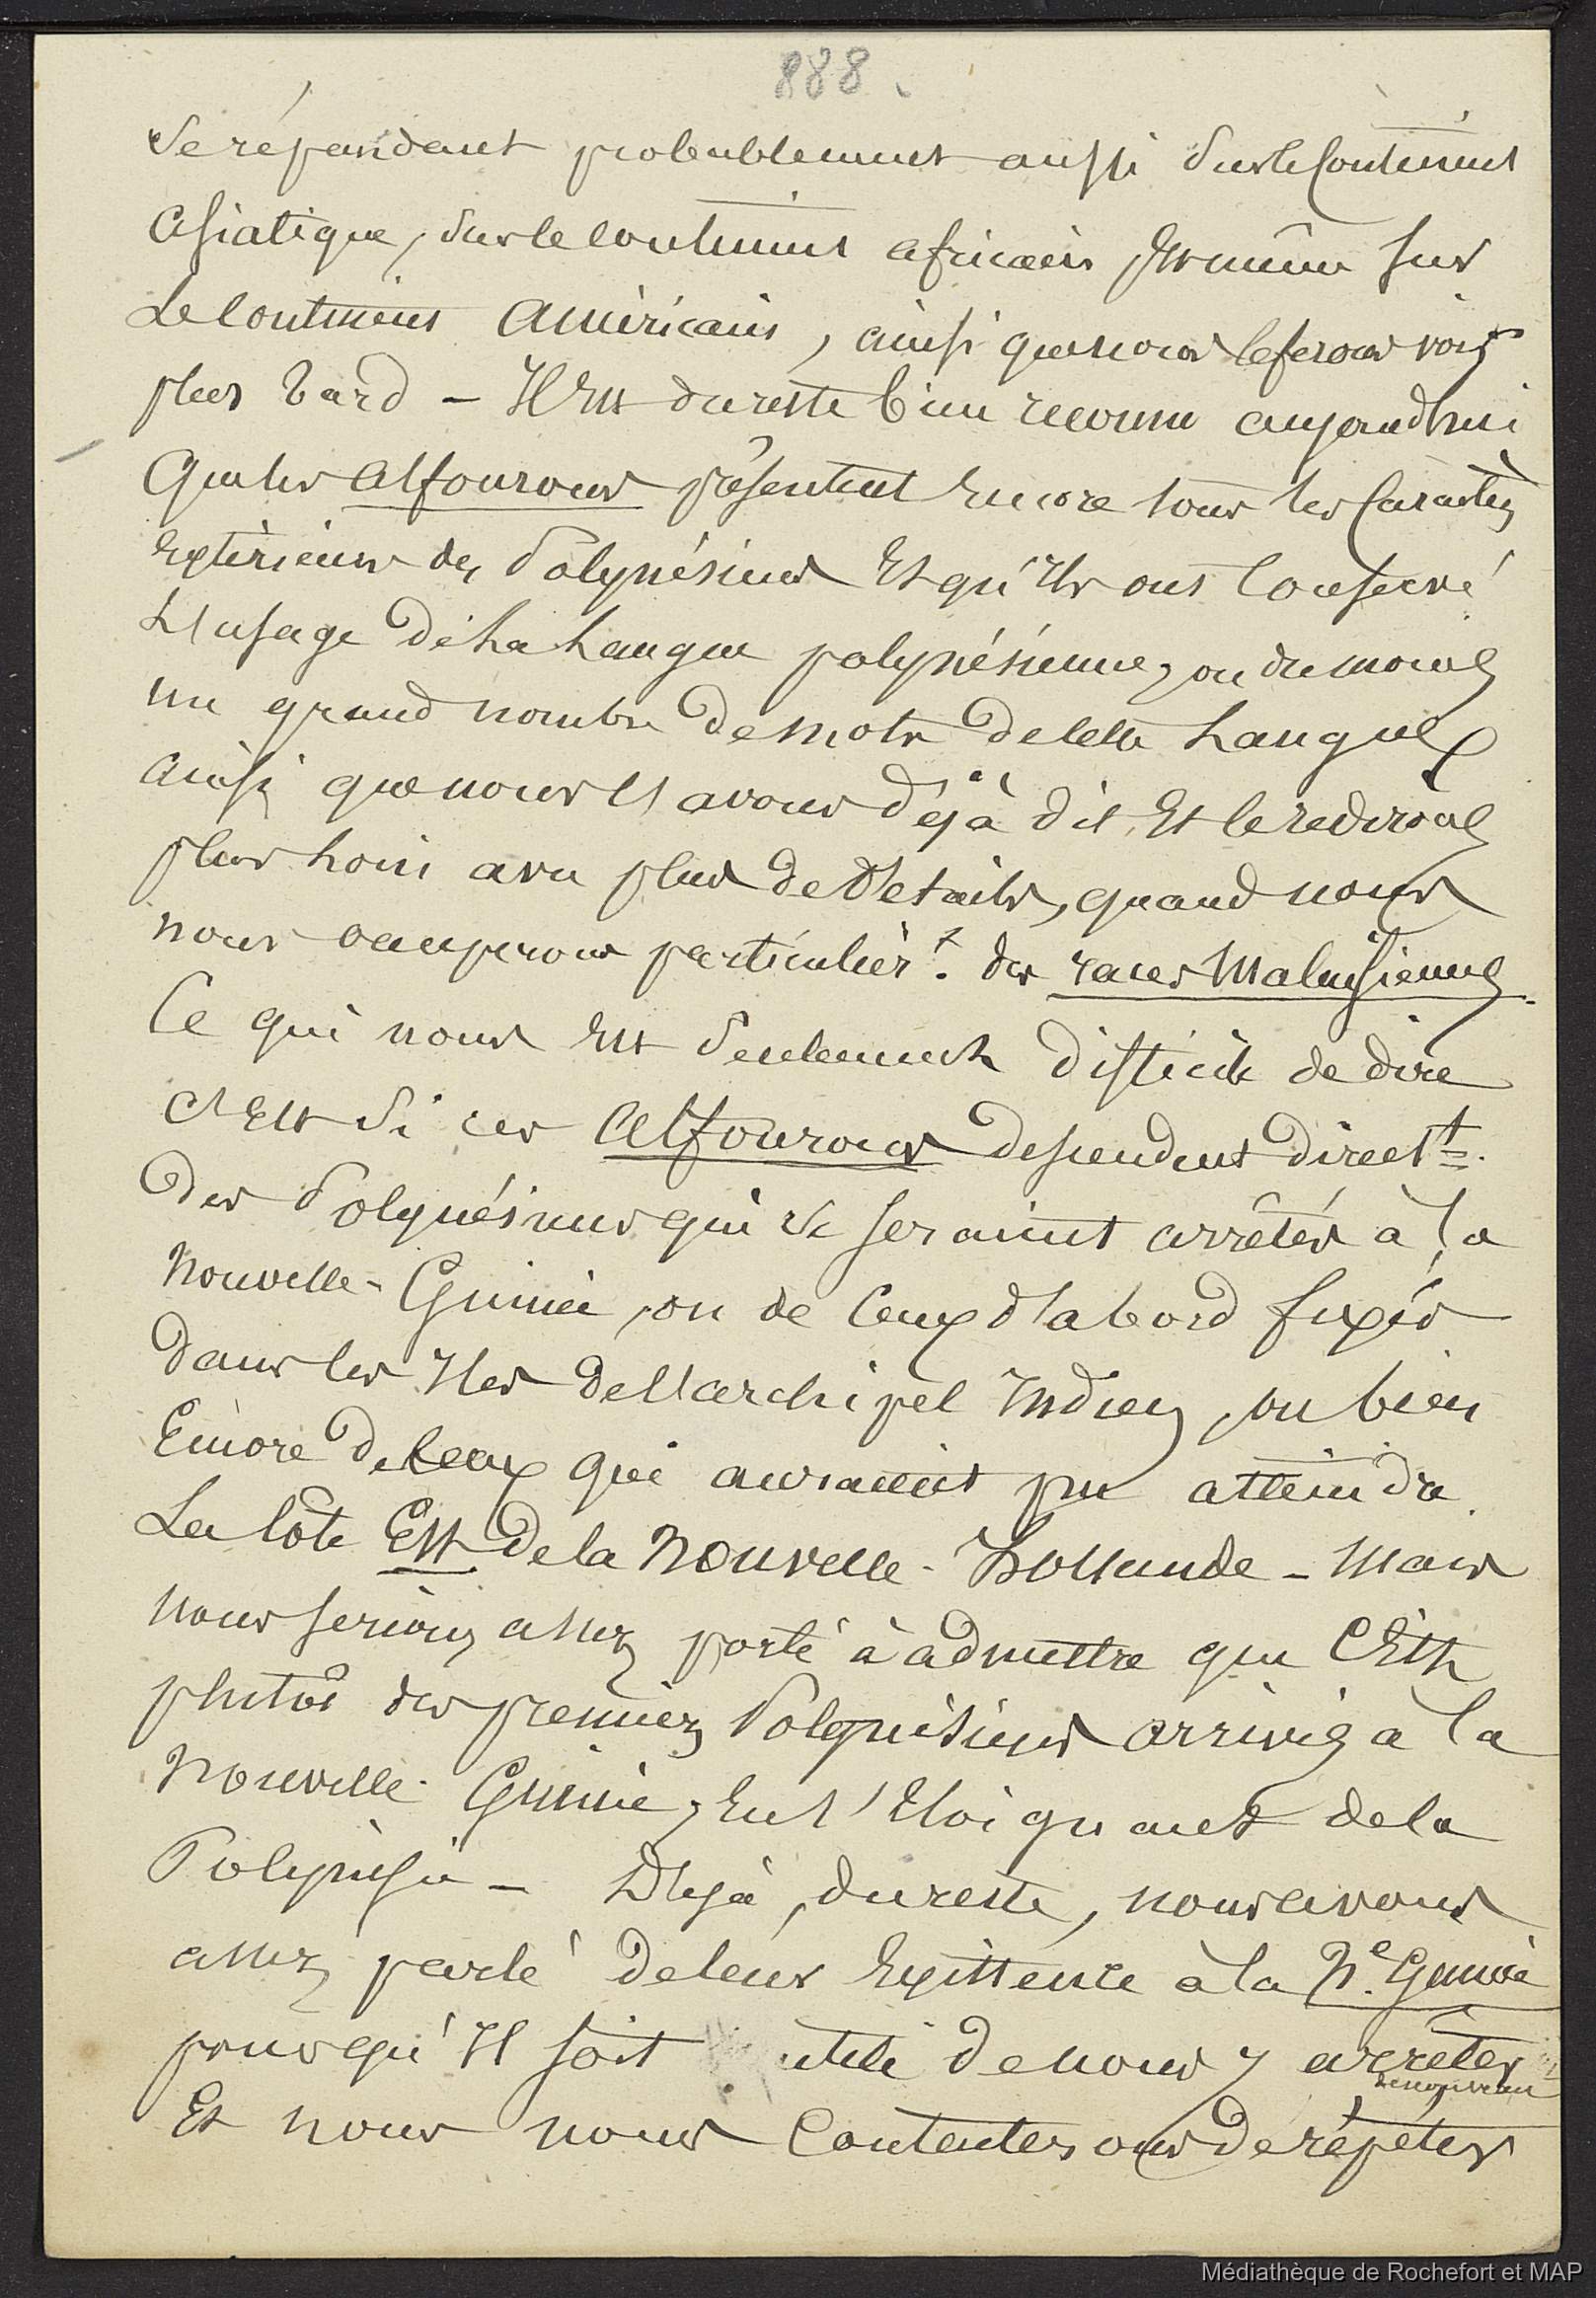 888.
se répandant probablement aussi sur le Continent
asiatique, sur le continent africain & même sur
Le continent américain, ainsi que nous le ferons voir
plus tard – Il est du reste bien reconnu aujourd'hui
que les alfourous présentent encore tous les caractères
extérieurs des Polynésiens Et qu'Ils ont Conservé
L'usage de La Langue polynésienne, ou du moins
un grand nombre de mots de cette Langue
ainsi que nous l'avons déjà dit, Et le redirons
plus Loin avec plus de Détails, quand nous
nous occuperons particulièrt. des races Malaisiennes.
Ce qui nous Est seulement difficile de dire
c'Est si ces Alfourous descendent directt.
des Polynésiens qui se seraient arrêtés à la
Nouvelle-Guinée, ou de Ceux d'abord fixés
dans les Iles de l'archipel Indien, ou bien
Encore de Ceux qui auraient pu atteindre
La Côte Est de la Nouvelle-Hollande – Mais
nous serions assez porté à admettre que C'Est
plutôt des premiers Polynésiens arrivés à la
Nouvelle-Guinée, En s'Eloignant de la
Polynésie – Déjà, du reste, nous avons
assez parlé de leur Existence à la Ne. Guinée
pour qu'Il soit utile de nous y arrêter
de nouveau
Et nous nous Contenterons de répéter
Médiathèque de Rochefort et MAP